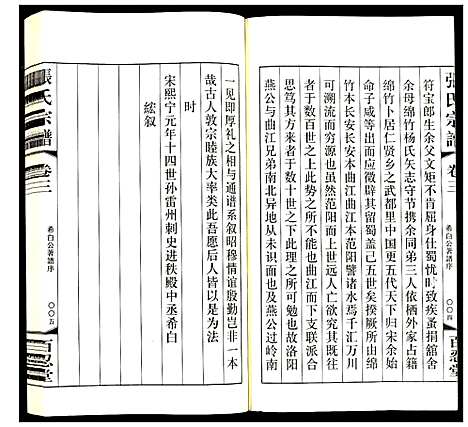 張氏宗譜 卷三
希白公著譜序
〇〇四
百忍堂
符宝郎生余父文矩不肯屈身仕蜀忧时致疾蚤捐舘舍
余母绵竹杨氏矢志守节携余同弟三人依栖外家占籍
绵竹卜居仁贤乡之武都里中国更五代天下归宋余始
命子咸等出而应徵辟其留蜀盖己五世矣揆厥所由绵
竹本长安长安本曲江曲江本范阳譬诸水焉千汇万川
可溯流而穷源也虽然范阳而上世次愈远人亡欲究其既往
者于数百世之上此势之所不能也曲江而下支联派合
思笃其方来者于数十世之下此情之所不容已也故洛阳
燕公与曲江兄弟南北异地从未识面也及燕公过岭南
一见即厚礼之相与通谱系叙昭穆情谊殷勤岂非一本
哉古人敦宗睦族大率类此吾愿后人皆以是为法
时
宋熙宁元年十四世孙雷州刺史进秩殿中丞希白
綋叙
張氏宗譜 卷三
希白公著譜序
〇〇五
百忍堂